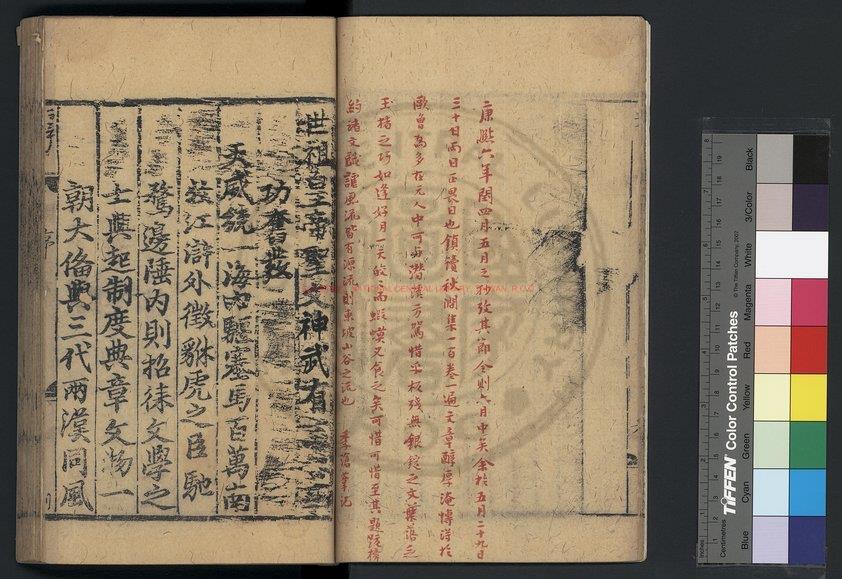 康熙六年閏四月五月之抄攷其節令則六月中矣余於五月二十九日
三十日兩日正畏日也鎮讀秋澗集一百卷一遍文章醇厚淹博詩於
歐曾為多在元人中可與潛溪方駕惜乎板殘無銀錠之文葉落之
玉搔之巧如逢好月一天皎之而蝦蟆又食之矣可惜可惜至其題跋
約諸文賦謹風流皆有源流則東坡山谷之流也 季滄葦記
世祖皇帝聖文神武有
功奮數
天威統一海內驅塞馬百萬南
教江滸外徵貅虎之臣馳
騖邊陲內則招徠文學之
士興起制度典章文物一
朝大備與三代兩漢同風
序
TIFFEN Color Control Patches
© The Tiffen Company, 2002
Blue
Cyan
Green
Yellow
Red
Magenta
White
3/Color
Black
Inches
Centimetres